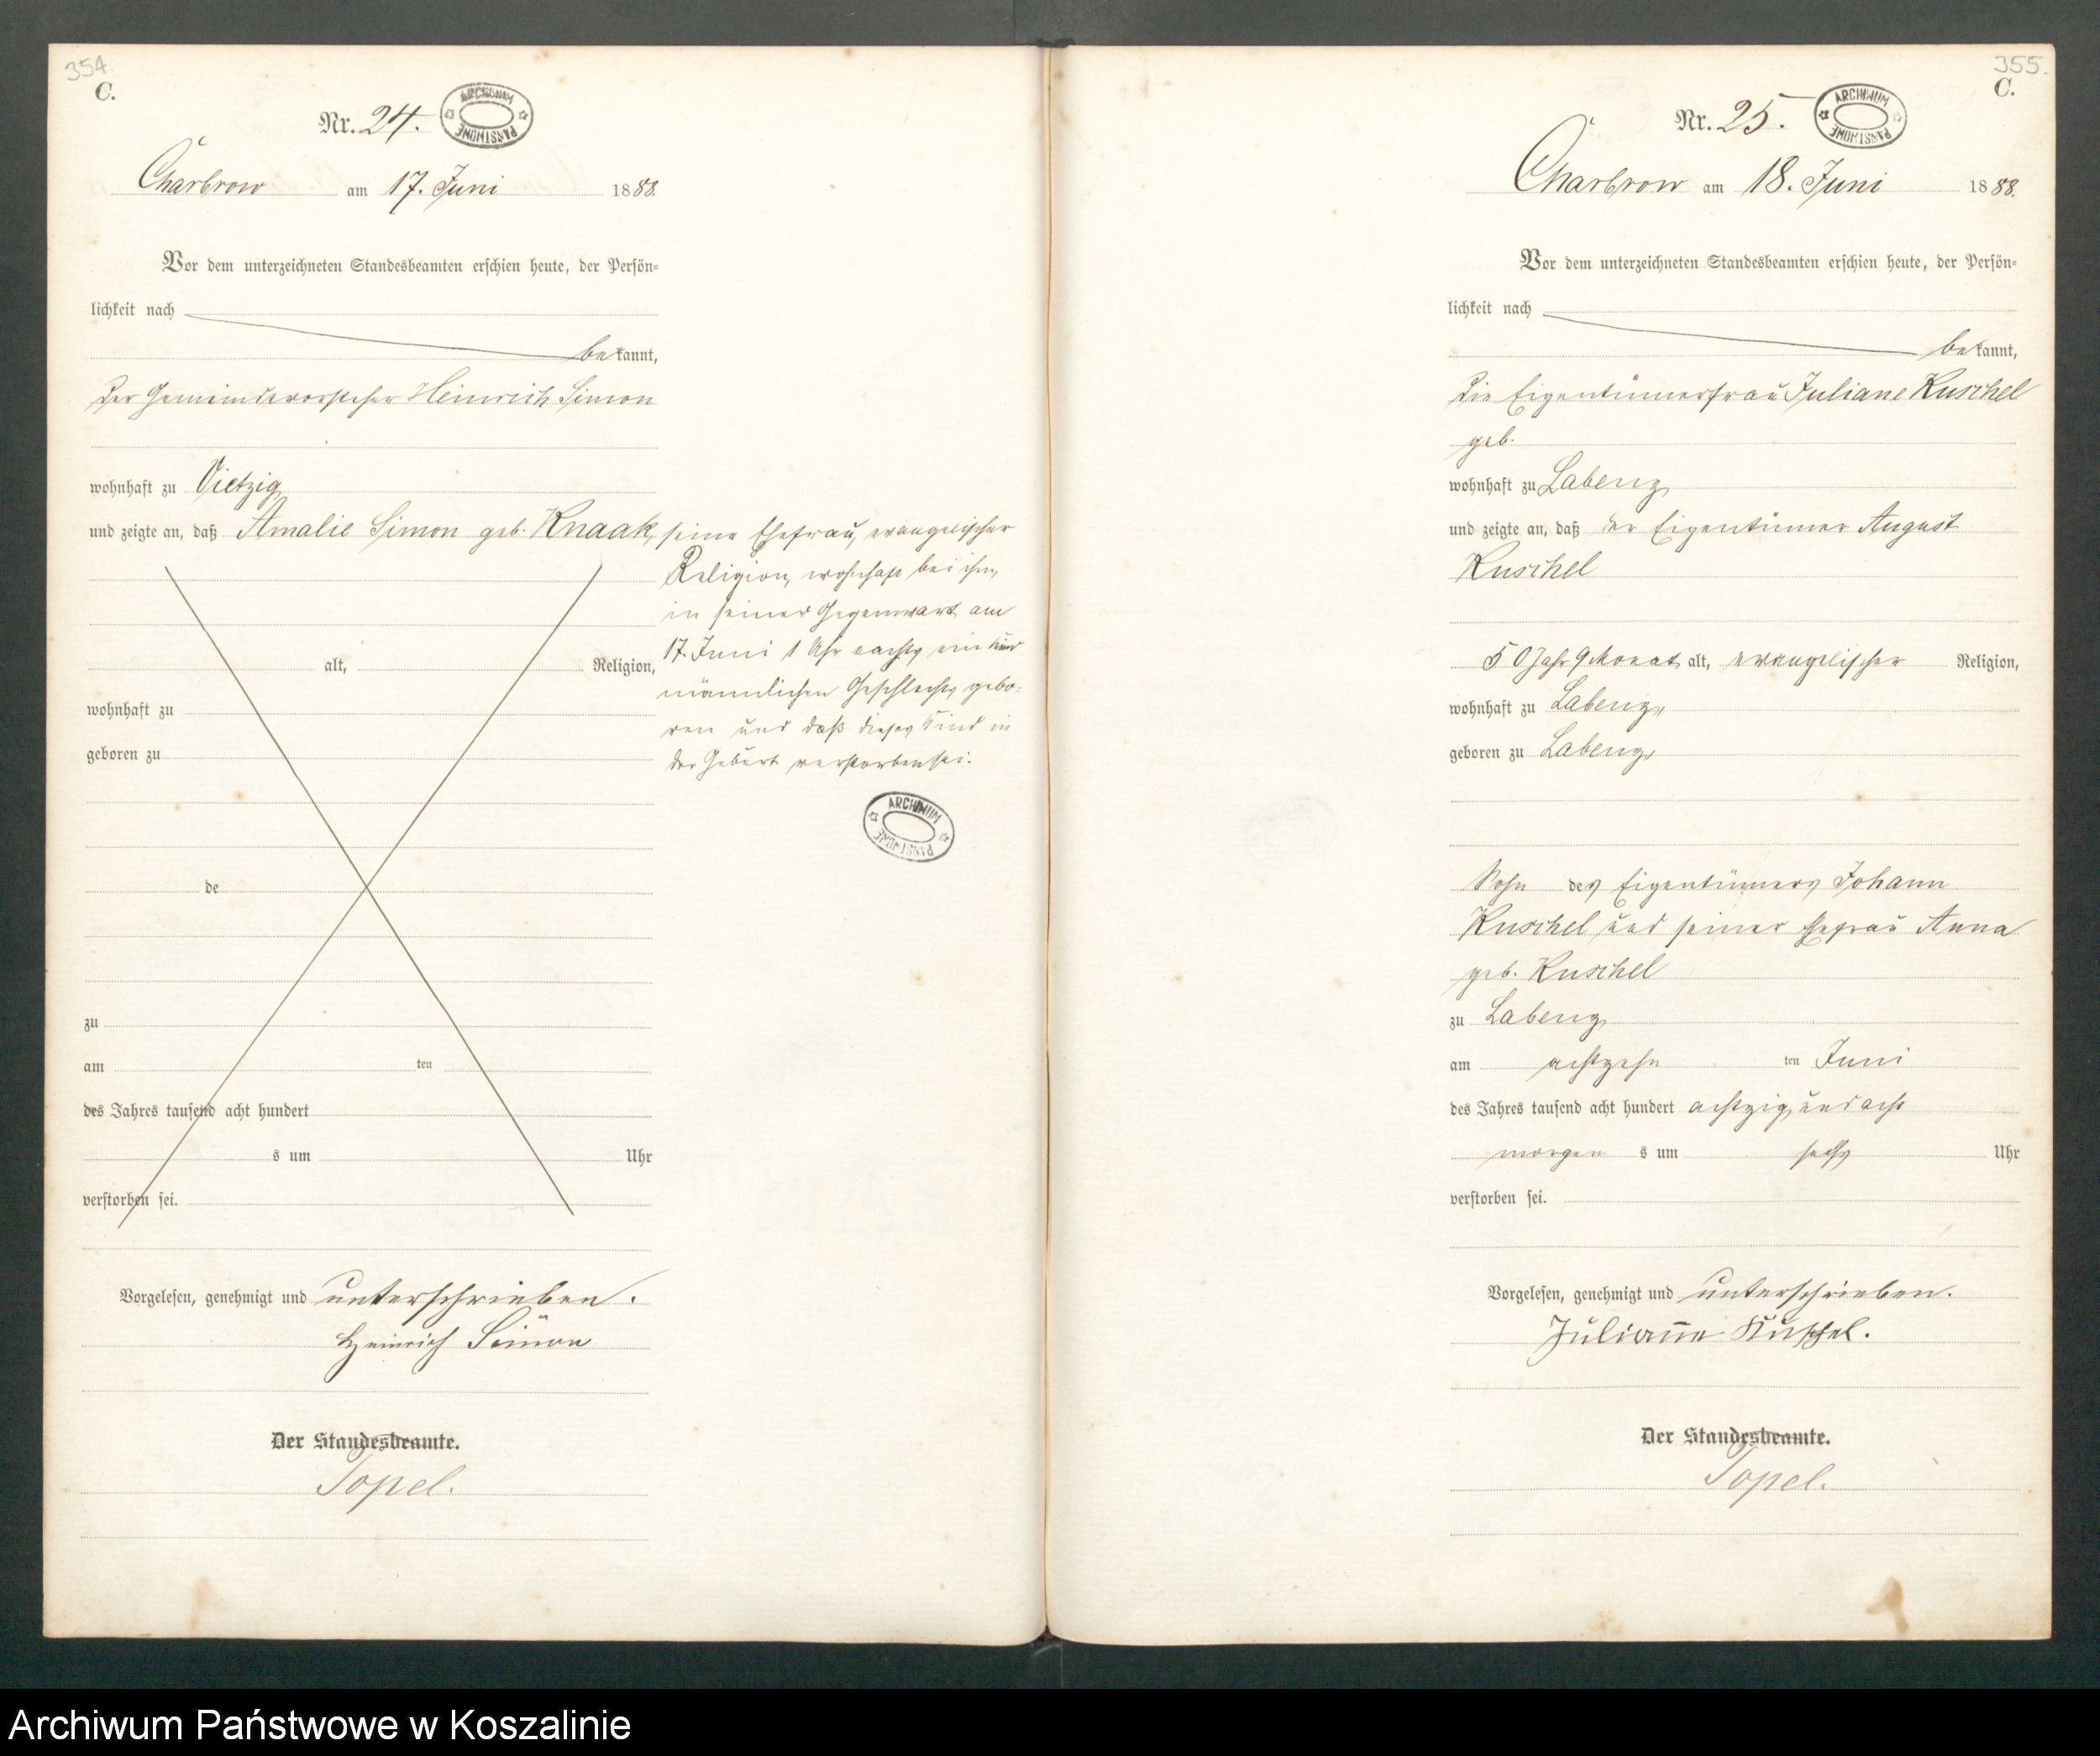 354.
C.
Nr. 24.
ARCHIWUM PAŃSTWOWE
Charbrow am 17. Juni 1888.
Vor dem unterzeichneten Standesbeamten erschien heute, der Persön-
lichkeit nach
bekannt,
der Gemeindevorsteher Heinrich Simon
wohnhaft zu Vietzig
und zeigte an, daß Amalie Simon geb. Knaak, seine Ehefrau, evangelischer
Religion, wohnhaft bei ihm,
in seiner Gegenwart am
17. Juni 1 Uhr nachts ein Kind
männlichen Geschlechts gebo-
ren und daß dieses Kind in
der Geburt verstorben sei.
ARCHIWUM PAŃSTWOWE
alt, Religion,
wohnhaft zu
geboren zu
de
zu
am ten
des Jahres tausend acht hundert
s um Uhr
verstorben sei.
Vorgelesen, genehmigt und unterschrieben.
Heinrich Simon
Der Standesbeamte.
Topel.
355.
C.
Nr. 25.
ARCHIWUM PAŃSTWOWE
Charbrow am 18. Juni 1888.
Vor dem unterzeichneten Standesbeamten erschien heute, der Persön-
lichkeit nach
bekannt,
die Eigentümerfrau Juliane Kuschel
geb.
wohnhaft zu Labenz
und zeigte an, daß der Eigentümer August
Kuschel
50 Jahr 9 Monat alt, evangelischer Religion,
wohnhaft zu Labenz,
geboren zu Labenz,
Sohn des Eigentümers Johann
Kuschel und seiner Ehefrau Anna
geb. Kuschel
zu Labenz
am achtzehn ten Juni
des Jahres tausend acht hundert achtzig und acht
morgen s um sechs Uhr
verstorben sei.
Vorgelesen, genehmigt und unterschrieben.
Julianne Kuschel.
Der Standesbeamte.
Topel.
Archiwum Państwowe w Koszalinie